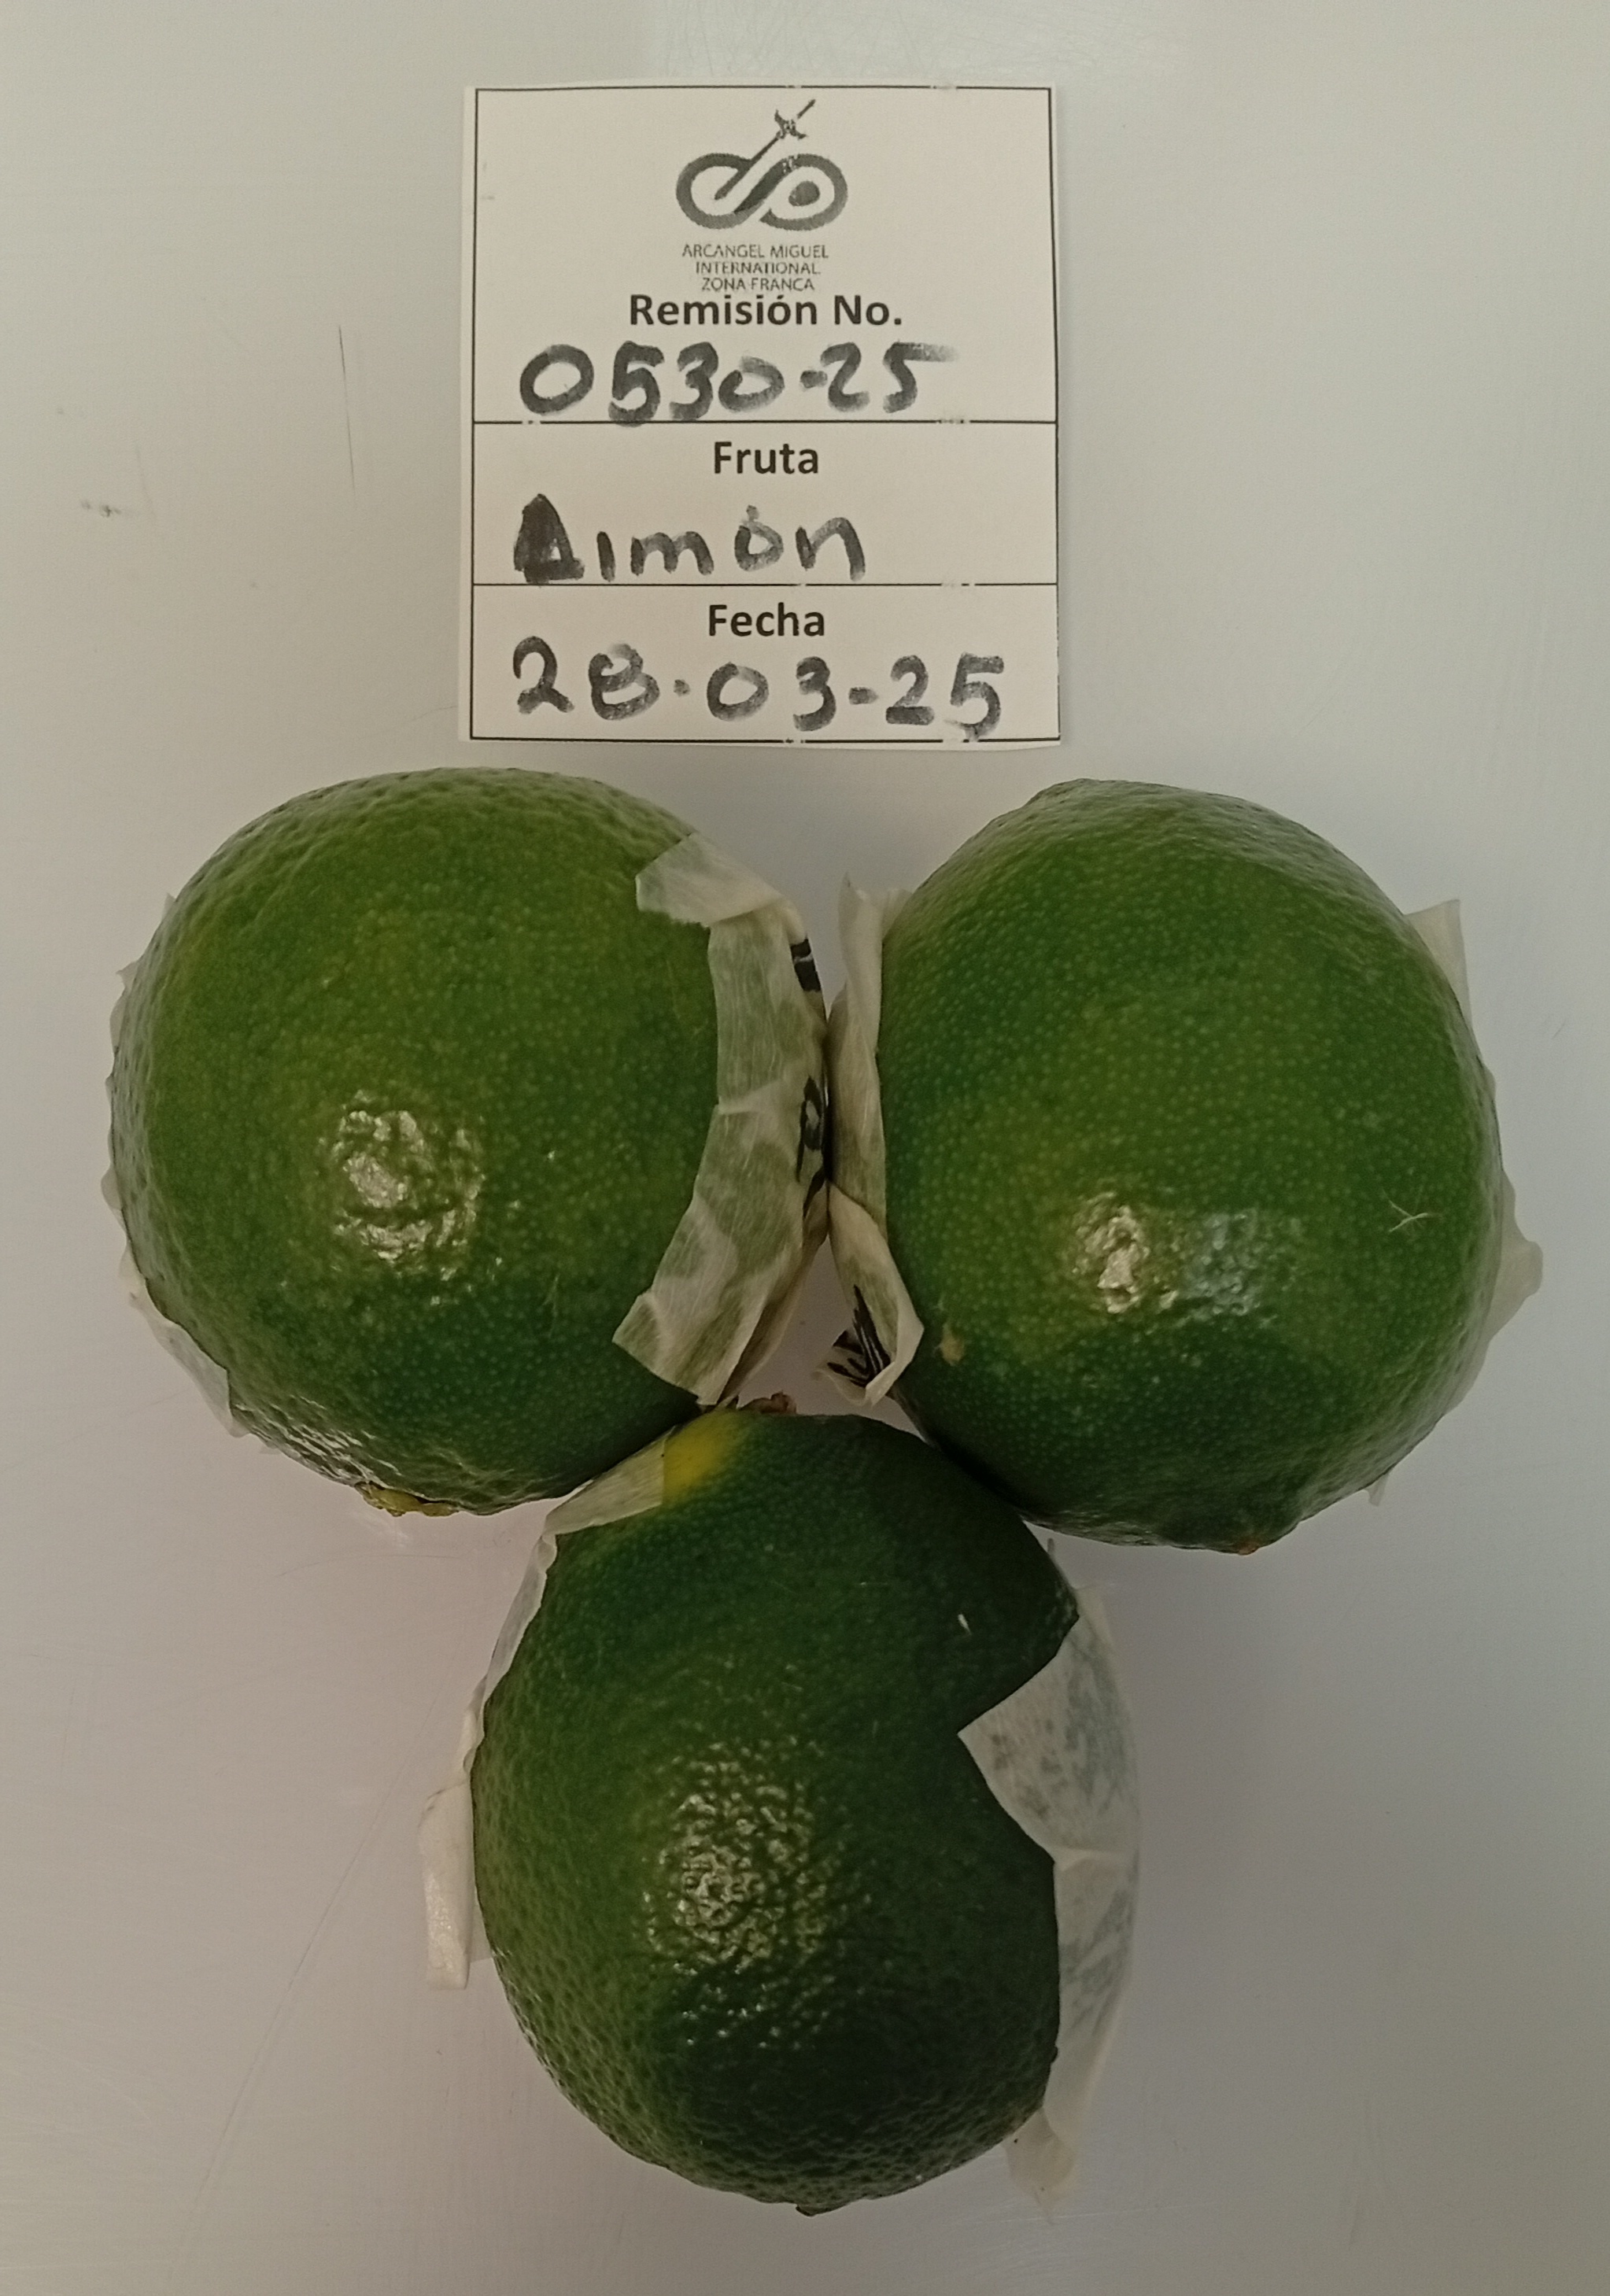 ARCANGEL MIGUEL
INTERNATIONAL
ZONA FRANCA
Remisión No.
0530-25
Fruta
Limón
Fecha
28-03-25